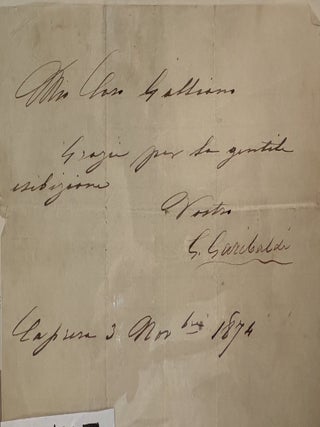 Mio Caro Galliano
Grazie per la gentile
esibizione
Vostro
G. Garibaldi
Caprera 3 Novbre 1874